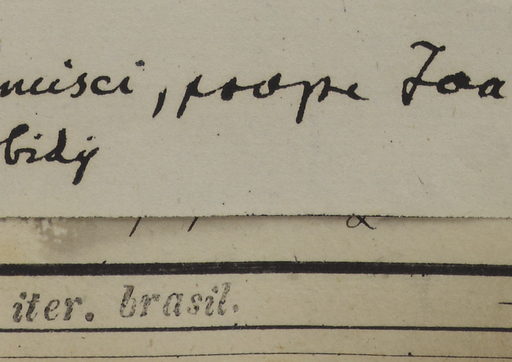 ncisci, prope Joa
bidy
iter. brasil.